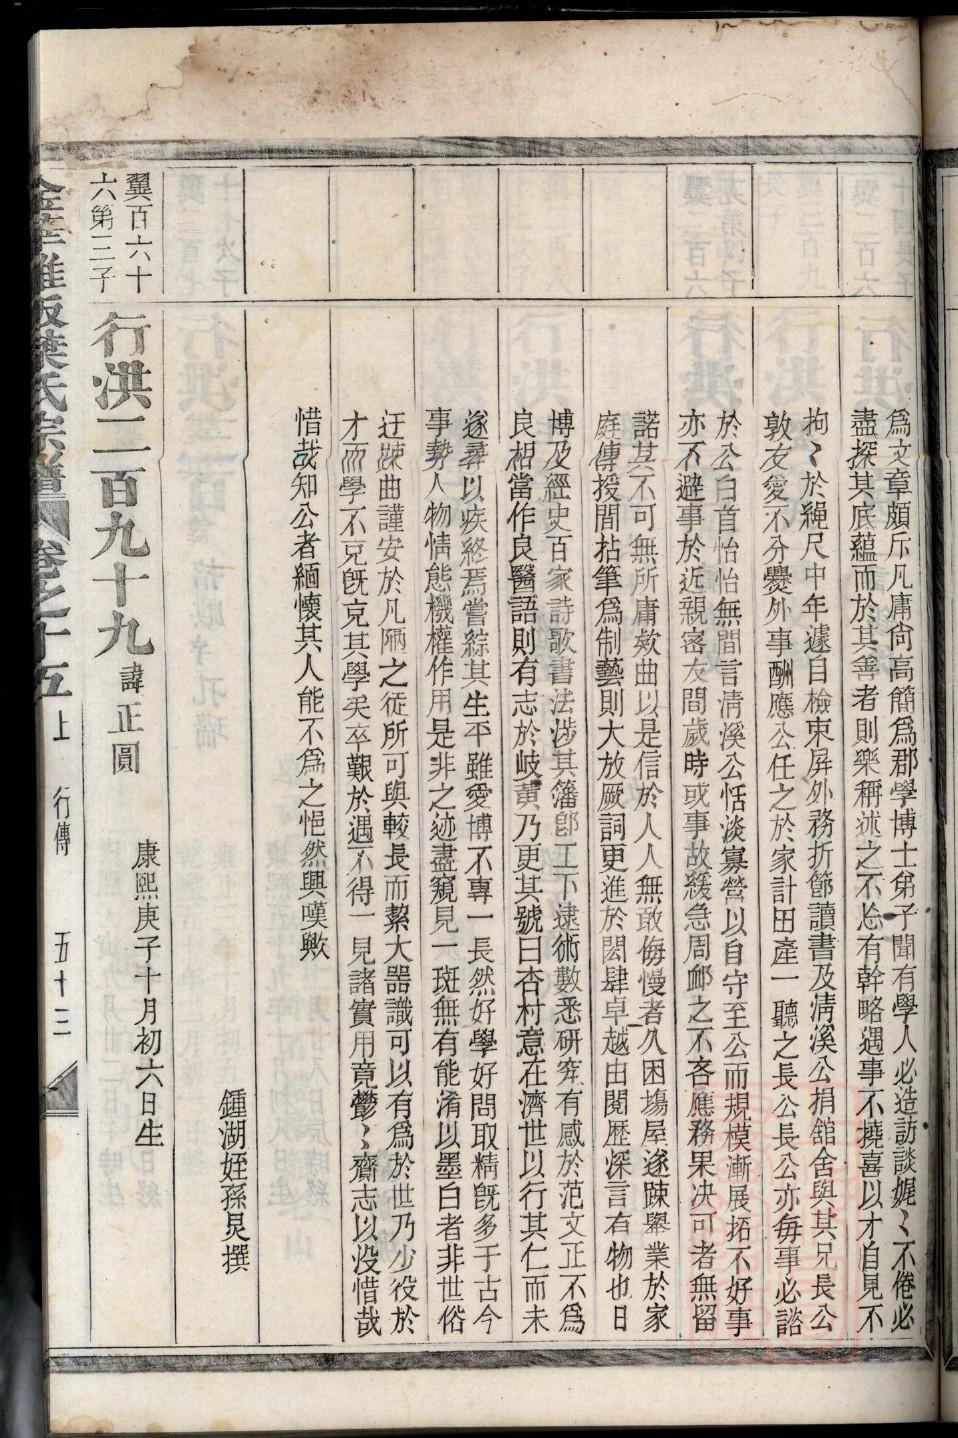 爲文章頗斥凡庸尙高簡爲郡學博士弟子聞有學人必造訪談娓〻不倦必
盡探其底蘊而於其善者則樂稱述之不怠有幹略遇事不撓喜以才自見不
拘〻於繩尺中年遽自檢束屏外務折節讀書及淸溪公捐舘舍與其兄長公
敦友愛不分爨外事酬應公任之於家計田產一聽之長公長公亦每事必諮
於公白首怡怡無間言淸溪公恬淡寡營以自守至公而規模漸展拓不好事
亦不避事於近親密友間歲時或事故緩急周卹之不吝應務果决可者無留
諾其不可無所庸欸曲以是信於人人無敢侮慢者久困塲屋遂踈舉業於家
庭傳授間拈筆爲制藝則大放厥詞更進於閎肆卓越由閱歴深言有物也日
博及經史百家詩歌書法涉其籓卽壬下遠術數悉硏究有感於范文正不爲
良相當作良醫語則有志於岐黃乃更其號曰杏村意在濟世以行其仁而未
遂尋以疾終焉嘗綜其生平雖愛博不專一長然好學好問取精旣多于古今
事勢人物情態機權作用是非之迹盡窺見一斑無有能淆以墨白者非世俗
迂踈曲謹安於凡陋之従所可與較長而絜大噐識可以有爲於世乃少役於
才而學不克旣克其學矣卒艱於遇不得一見諸實用竟鬱〻齎志以没惜哉
惜哉知公者緬懷其人能不爲之悒然興嘆歟
鍾湖姪孫炅撰
翼百六十
六第三子
行洪二百九十九 諱正圓
康熙庚子十月初六日生
金華雅畈葉氏宗譜 卷之十五 上 行傳 五十三